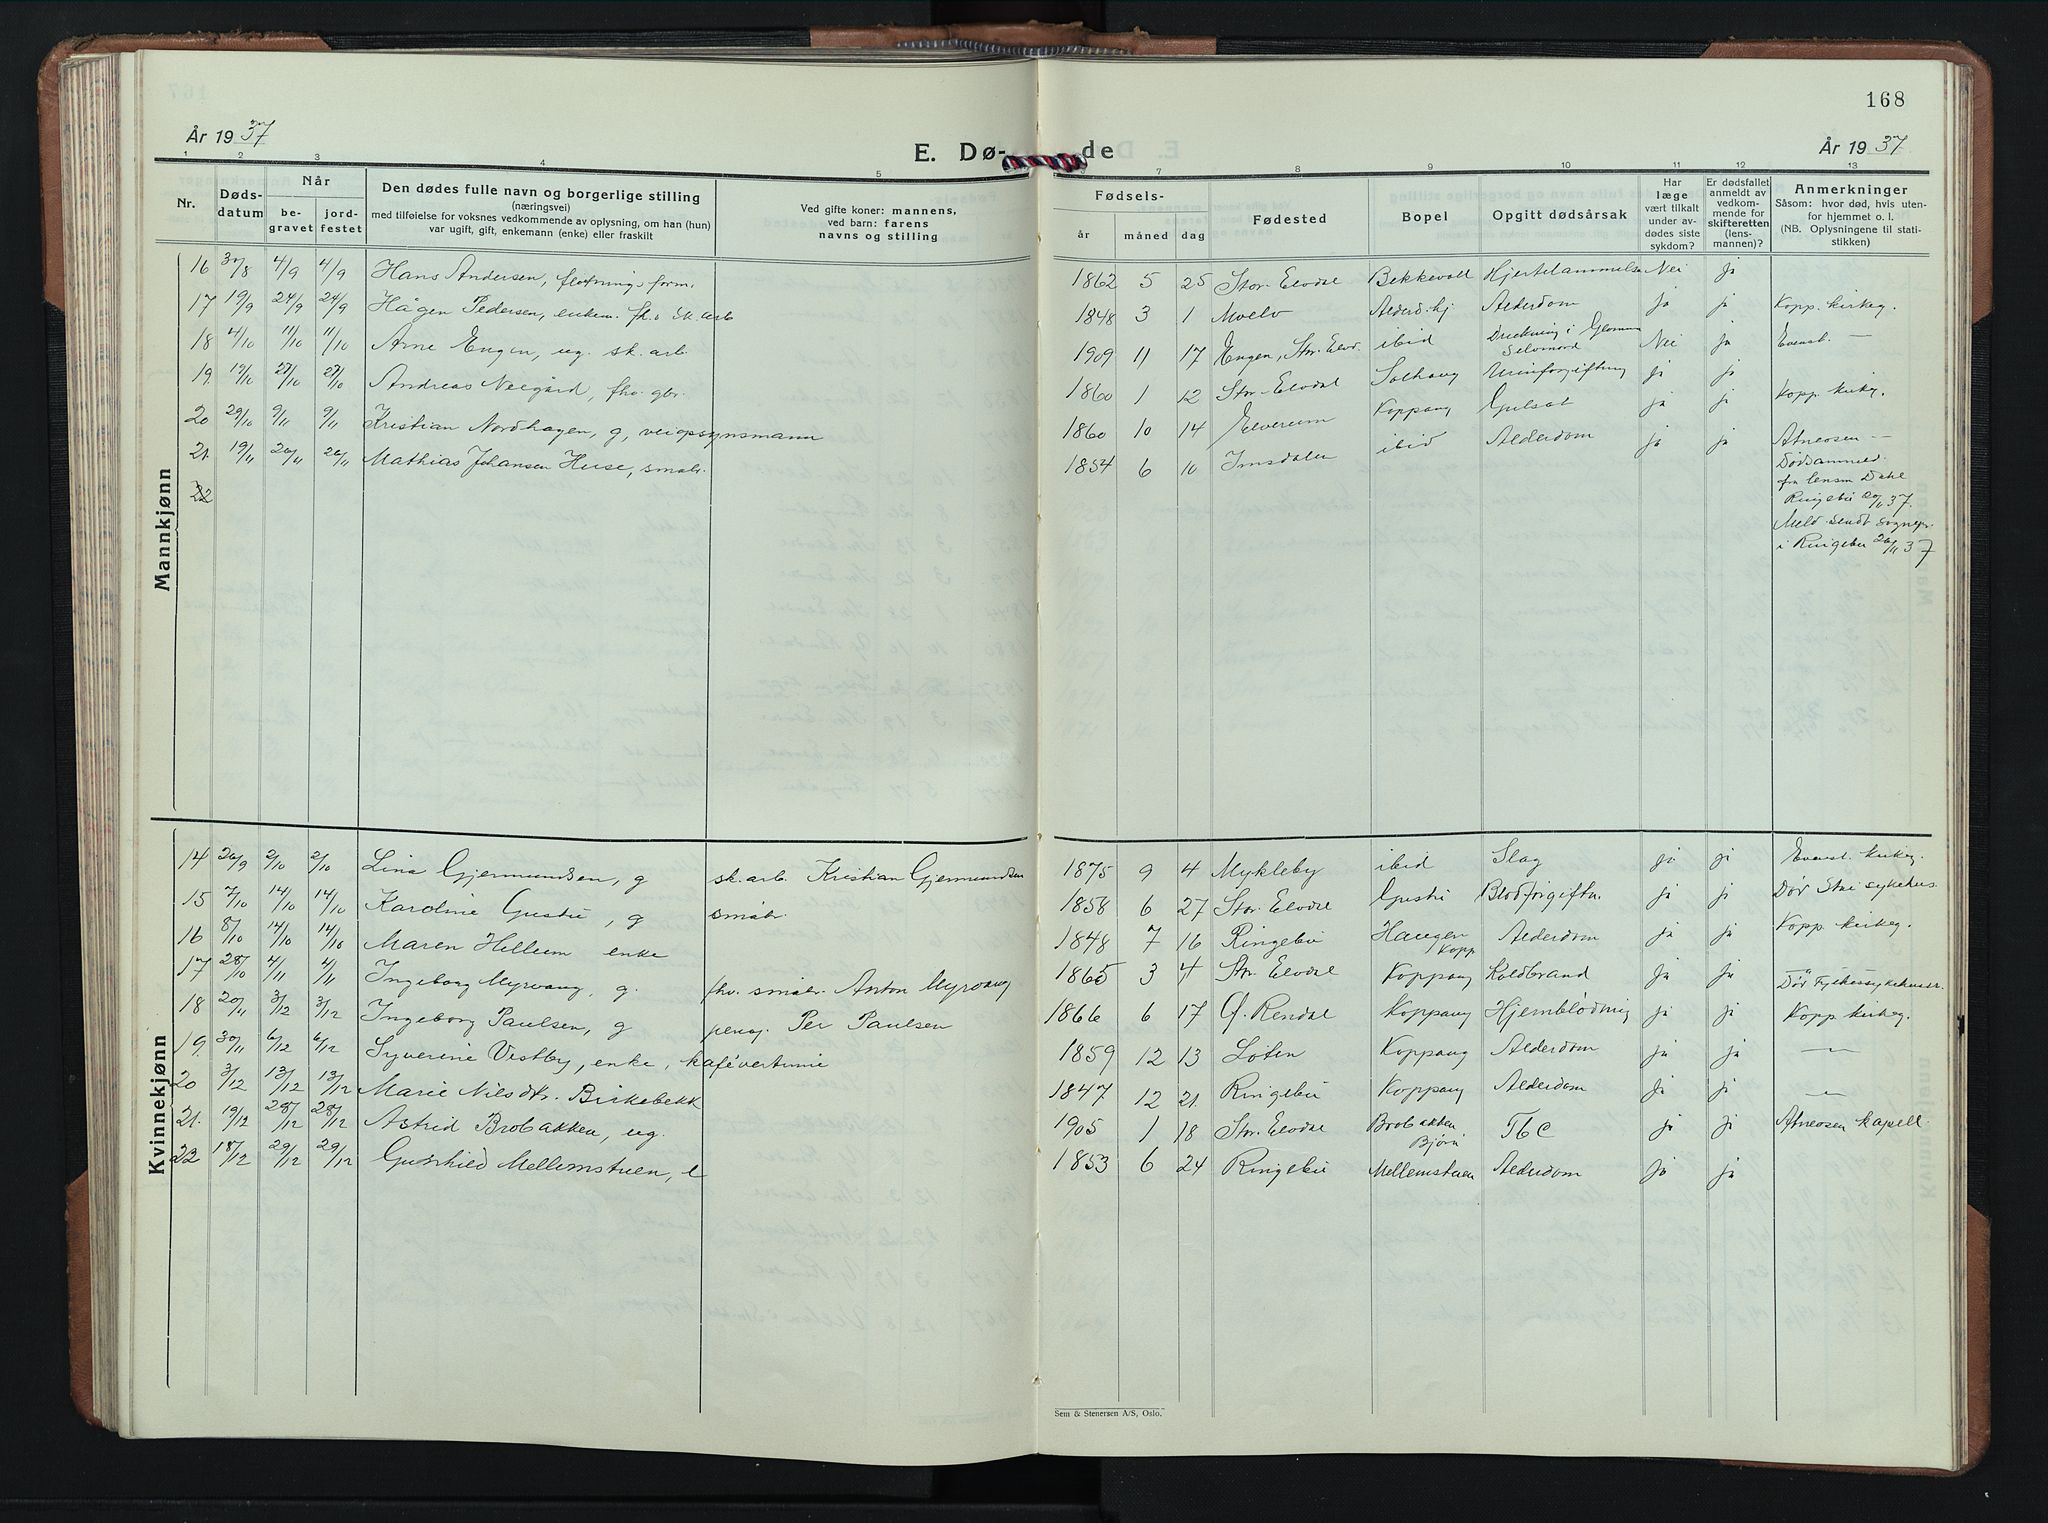 168
År 1937
År 1937
E. Dø- de
1 2 3 4 5 7 8 9 10 11 12 13
Nr.
Døds-datum
Når
be-gravet
jord-festet
Den dødes fulle navn og borgerlige stilling
(næringsvei)
med tilføielse for voksnes vedkommende av oplysning, om han (hun)
var ugift, gift, enkemann (enke) eller fraskilt
Ved gifte koner: mannens,
ved barn: farens
navns og stilling
Fødsels-
år måned dag
Fødested
Bopel
Opgitt dødsårsak
Har læge vært tilkalt under av-dødes siste sykdom?
Er dødsfallet anmeldt av vedkom-mende for skifteretten (lens-mannen)?
Anmerkninger
Såsom: hvor død, hvis uten-
for hjemmet o. l.
(NB. Oplysningene til stati-
stikken)
Mannkjønn
16 30/8 4/9 4/9 Hans Andersen, fløtnings form. 1862 5 25 Stor-Elvdal Bekkevoll Hjertelammelse Nei ja
17 19/9 24/9 24/9 Hågen Pedersen, enkem. fh. 1848 3 1 Moelv Alderd.hj Alderdom ja ja Kopp. kirkeg.
18 4/10 11/10 11/10 Arne Engen, ug. sk. arb. 1909 11 17 Engen, Stor-Elvd. ibid Drukning i Glomma Selvmord Nei ja Evenst. —
19. 19/10 27/10 27/10 Andreas Neegård, fhv. gbr. 1860 1 12 Stor-Elvdal Solhaug Urinforgiftning ja ja Kopp. kirkg.
20 29/10 9/11 9/11 Kristian Nordhagen, g, veiopsynsmann 1860 10 14 Elverum Koppang Gulsot ja ja
21. 19/11 26/11 26/11 Mathias Johansen Huse, småbr. 1854 6 10 Imsdalen ibid Alderdom ja ja Atneosen —
Dødsanmeld.
fra lensm Dahl
Ringebu 20/11 37.
Meld. sendt sognepr.
i Ringebu 26/11 37
22
Kvinnekjønn
14 26/9 2/10 2/10 Lina Gjermundsen, g sk. arb. Kristian Gjermundsen 1875 9 4 Mykleby ibid Slag ja ja Evenst. kirkeg.
15 7/10 14/10 14/10 Karoline Gustu, g småbr. 1858 6 27 Stor-Elvdal Gustu Blodforgiftn. ja ja Dør Stai sykehus.
16 8/10 14/10 14/10 Maren Hillum enke 1848 7 16 Ringebu Haugen Kopp Alderdom ja ja Kopp. kirkeg.
17 28/10 4/11 4/11 Ingeborg Myrvang, g. fhv. småbr. Anton Myrvang 1865 3 4 Stor-Elvdal Koppang Koldbrand ja ja Dør Fylkessykehuset
18 20/11 3/12 3/12 Ingeborg Paulsen, g pensj. Per Paulsen 1866 6 17 Ø. Rendal Koppang Hjerneblødning ja ja Kopp. kirkeg.
19. 30/11 6/12 6/12 Syverine Vestby, enke, kafévertinne 1859 12 13 Løten Koppang Alderdom ja ja —
20 3/12 13/12 13/12 Marie Nilsdtr. Birkebekk 1847 12 21. Ringebu Koppang Alderdom ja ja —
21. 19/12 28/12 28/12 Astrid Brobakken, ug. 1905 1 18 Stor-Elvdal Brobakken Bjørå Tbc ja ja Atneosen kapell.
22 18/12 29/12 29/12 Gunhild Mellemstuen, e 1853 6 24 Ringebu Mellemstuen Alderdom ja ja
Sem & Stenersen A/S, Oslo.